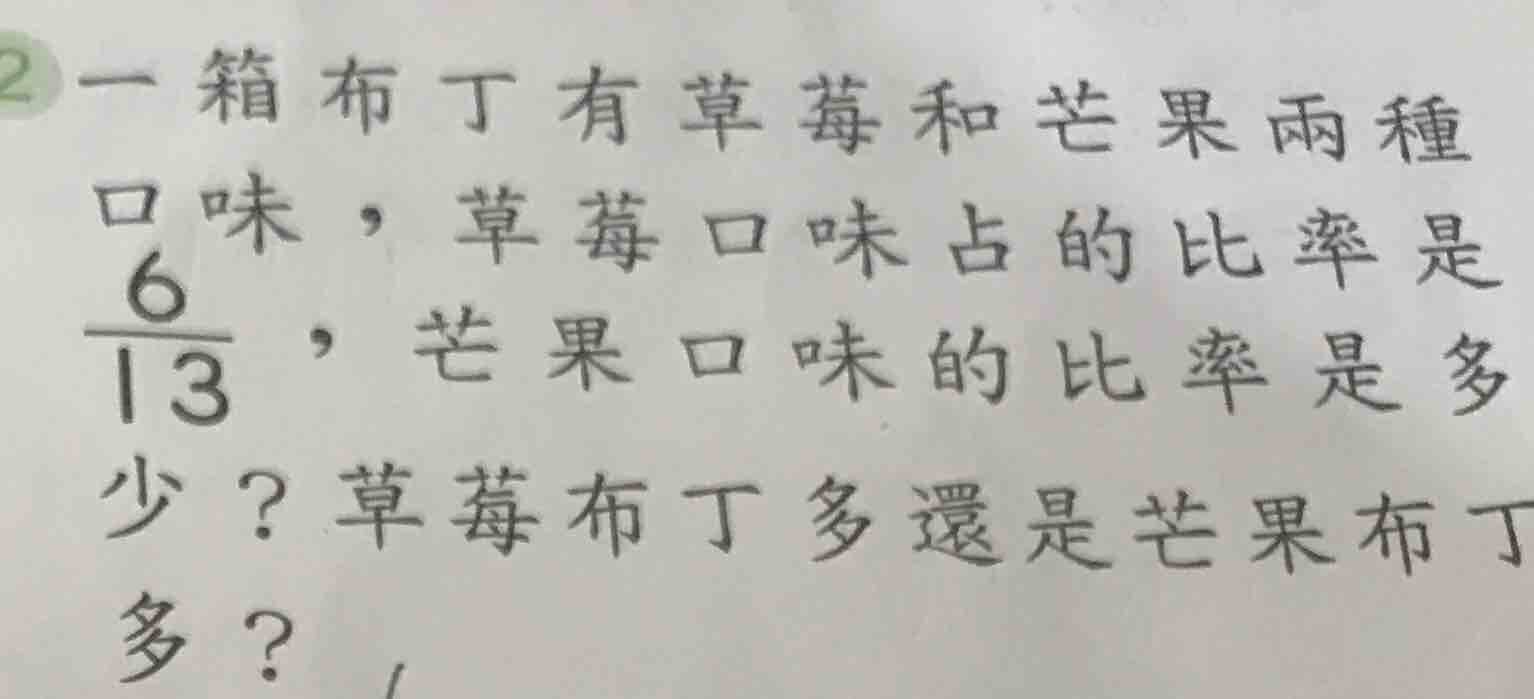 2 一箱布丁有草莓和芒果兩種
口味，草莓口味占的比率是
6/13，芒果口味的比率是多
少？草莓布丁多還是芒果布丁
多？